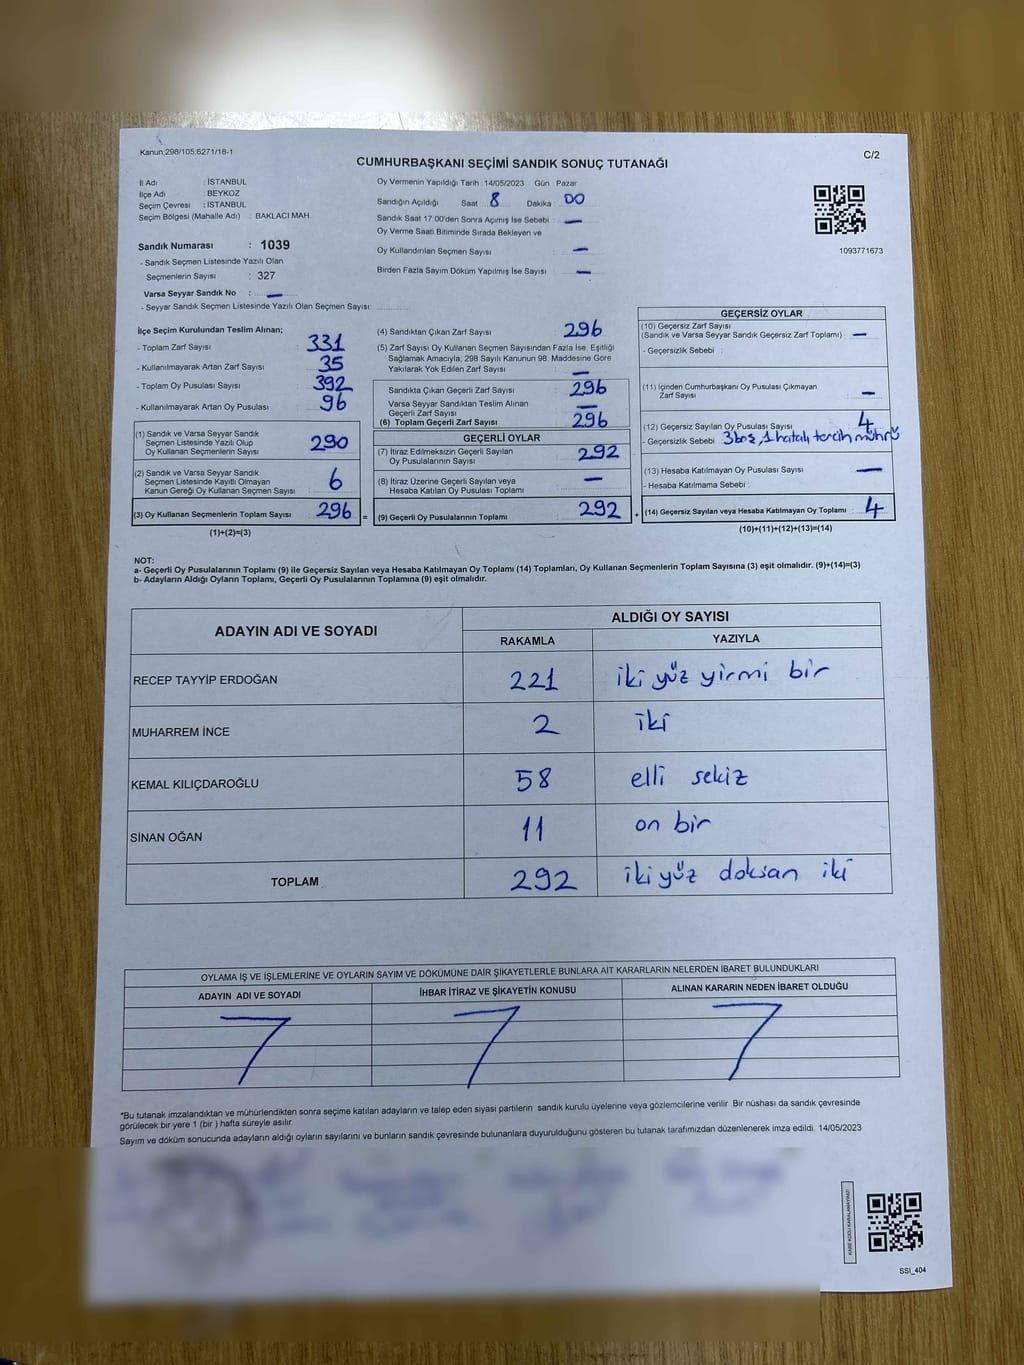 Kanun,298/105;6271/18-1
CUMHURBAŞKANI SEÇİMİ SANDIK SONUÇ TUTANAĞI
C/2
İl Adı : İSTANBUL
İlçe Adı : BEYKOZ
Seçim Çevresi : İSTANBUL
Seçim Bölgesi (Mahalle Adı) : BAKLACI MAH
Sandık Numarası : 1039
- Sandık Seçmen Listesinde Yazılı Olan
Seçmenlerin Sayısı : 327
Varsa Seyyar Sandık No : —
- Seyyar Sandık Seçmen Listesinde Yazılı Olan Seçmen Sayısı:
Oy Vermenin Yapıldığı Tarih : 14/05/2023 Gün : Pazar
Sandığın Açıldığı Saat 8 Dakika 00
Sandık Saat 17 00'den Sonra Açımış İse Sebebi : —
Oy Verme Saati Bitiminde Sırada Bekleyen ve
Oy Kullandırılan Seçmen Sayısı : —
Birden Fazla Sayım Döküm Yapılmış İse Sayısı : —
1093771673
İlçe Seçim Kurulundan Teslim Alınan;
- Toplam Zarf Sayısı : 331
- Kullanılmayarak Artan Zarf Sayısı : 35
- Toplam Oy Pusulası Sayısı : 392
- Kullanılmayarak Artan Oy Pusulası : 96
(1) Sandık ve Varsa Seyyar Sandık
Seçmen Listesinde Yazılı Olup
Oy Kullanan Seçmenlerin Sayısı : 290
(2) Sandık ve Varsa Seyyar Sandık
Seçmen Listesinde Kayıtlı Olmayan
Kanun Gereği Oy Kullanan Seçmen Sayısı : 6
(3) Oy Kullanan Seçmenlerin Toplam Sayısı : 296 =
(1)+(2)=(3)
(4) Sandıktan Çıkan Zarf Sayısı : 296
(5) Zarf Sayısı Oy Kullanan Seçmen Sayısından Fazla İse, Eşitliği
Sağlamak Amacıyla, 298 Sayılı Kanunun 98. Maddesine Göre
Yakılarak Yok Edilen Zarf Sayısı : —
Sandıkta Çıkan Geçerli Zarf Sayısı : 296
Varsa Seyyar Sandıktan Teslim Alınan
Geçerli Zarf Sayısı : —
(6) Toplam Geçerli Zarf Sayısı : 296
GEÇERLİ OYLAR
(7) İtiraz Edilmeksizin Geçerli Sayılan
Oy Pusulalarının Sayısı : 292
(8) İtiraz Üzerine Geçerli Sayılan veya
Hesaba Katılan Oy Pusulası Toplamı : —
(9) Geçerli Oy Pusulalarının Toplamı : 292 +
GEÇERSİZ OYLAR
(10) Geçersiz Zarf Sayısı
(Sandık ve Varsa Seyyar Sandık Geçersiz Zarf Toplamı) : —
- Geçersizlik Sebebi :
(11) İçinden Cumhurbaşkanı Oy Pusulası Çıkmayan
Zarf Sayısı : —
(12) Geçersiz Sayılan Oy Pusulası Sayısı : 4
- Geçersizlik Sebebi : 3 boş, 1 hatalı tercih mührü
(13) Hesaba Katılmayan Oy Pusulası Sayısı : —
- Hesaba Katılmama Sebebi :
(14) Geçersiz Sayılan veya Hesaba Katılmayan Oy Toplamı : 4
(10)+(11)+(12)+(13)=(14)
NOT:
a- Geçerli Oy Pusulalarının Toplamı (9) ile Geçersiz Sayılan veya Hesaba Katılmayan Oy Toplamı (14) Toplamları, Oy Kullanan Seçmenlerin Toplam Sayısına (3) eşit olmalıdır. (9)+(14)=(3)
b- Adayların Aldığı Oyların Toplamı, Geçerli Oy Pusulalarının Toplamına (9) eşit olmalıdır.
ADAYIN ADI VE SOYADI
ALDIĞI OY SAYISI
RAKAMLA YAZIYLA
RECEP TAYYİP ERDOĞAN 221 iki yüz yirmi bir
MUHARREM İNCE 2 iki
KEMAL KILIÇDAROĞLU 58 elli sekiz
SİNAN OĞAN 11 on bir
TOPLAM 292 iki yüz doksan iki
OYLAMA İŞ VE İŞLEMLERİNE VE OYLARIN SAYIM VE DÖKÜMÜNE DAİR ŞİKAYETLERLE BUNLARA AİT KARARLARIN NELERDEN İBARET BULUNDUKLARI
ADAYIN ADI VE SOYADI İHBAR İTİRAZ VE ŞİKAYETİN KONUSU ALINAN KARARIN NEDEN İBARET OLDUĞU
*Bu tutanak imzalandıktan ve mühürlendikten sonra seçime katılan adayların ve talep eden siyasi partilerin sandık kurulu üyelerine veya gözlemcilerine verilir. Bir nüshası da sandık çevresinde
görülecek bir yere 1 (bir) hafta süreyle asılır.
Sayım ve döküm sonucunda adayların aldığı oyların sayılarını ve bunların sandık çevresinde bulunanlara duyurulduğunu gösteren bu tutanak tarafımızdan düzenlenerek imza edildi. 14/05/2023
KARE KODU KARALAMAYINIZ!
SSI_404